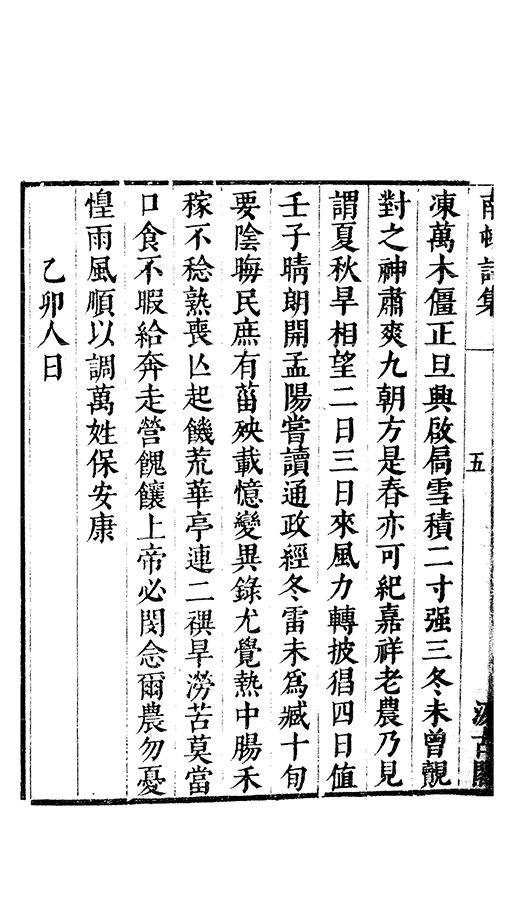 南村詩集
五
汲古閣
凍萬木僵正旦興啟扃雪積二寸强三冬未曾覿
對之神肅爽九朝方是春亦可紀嘉祥老農乃見
謂夏秋旱相望二日三日來風力轉披猖四日值
壬子晴朗開孟陽嘗讀通政經冬雷未爲臧十旬
要陰晦民庶有菑殃載憶變異錄尤覺熱中腸禾
稼不稔熟喪亾起饑荒華亭連二禩旱澇苦莫當
口食不暇給奔走營餽饟上帝必閔念爾農勿憂
惶雨風順以調萬姓保安康
乙卯人日